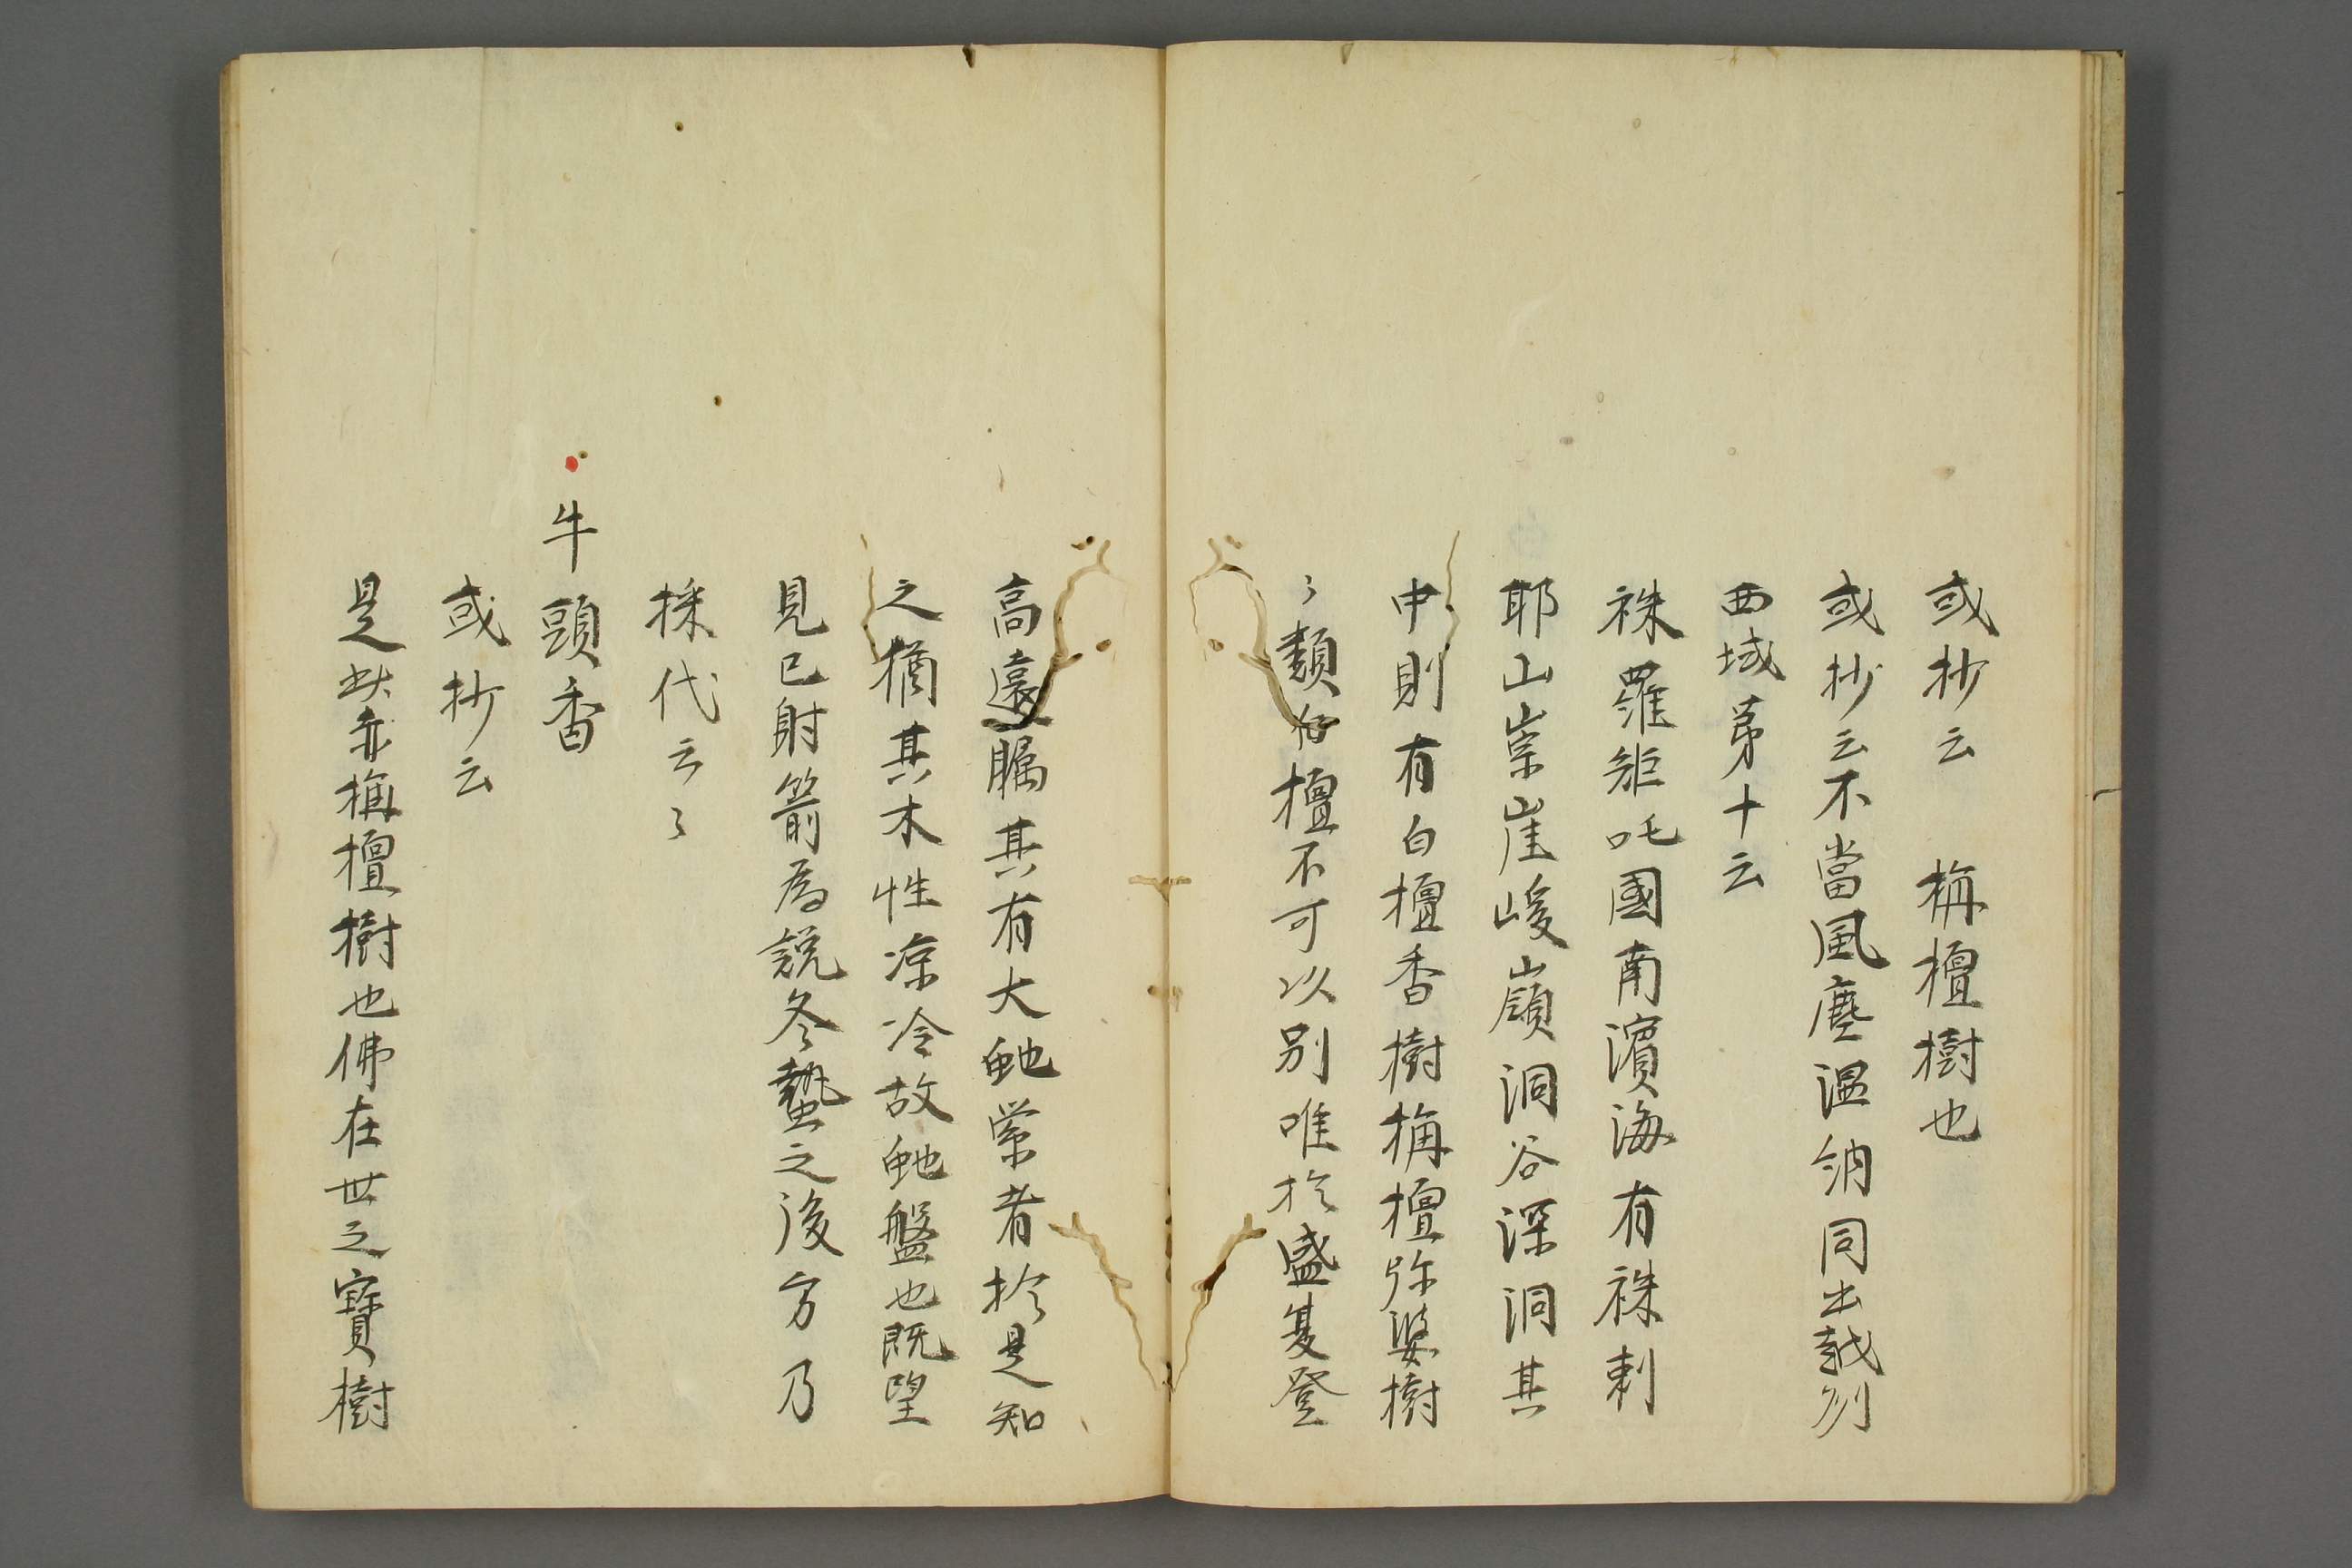 或抄云　栴檀樹也
或抄云不當風塵温納同出越列
西域第十云
秣羅矩吒國南濱海有秣剌
耶山崇崖峻嶺洞谷深洞其
中則有白檀香樹栴檀弥婆樹
〻類白檀不可以別唯於盛夏登
高遠矚其有大虵縈者於是知
之猶其木性凉冷故虵盤也既望
見已射箭為説冬蟄之後方乃
採代云〻
牛頭香
或抄云
是赤栴檀樹也佛在世之寶樹